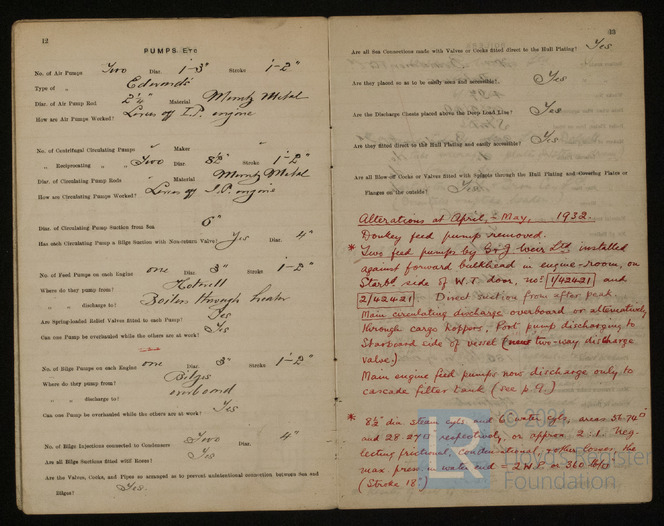 12
PUMPS, ETC
No. of Air Pumps Two Diar. 1'-3" Stroke 1'-2"
Type of „ Edwards
Diar. of Air Pump Rod 2¼" Material Muntz Metal
How are Air Pumps Worked? Levers off I.P. engine
No. of Centrifugal Circulating Pumps Maker
„ Reciprocating „ „ Two Diar. 8½" Stroke 1'-2"
Diar. of Circulating Pump Rods Material Muntz Metal
How are Circulating Pumps Worked? Levers off I.P. engine
Diar. of Circulating Pump Suction from Sea 6"
Has each Circulating Pump a Bilge Suction with Non-return Valve Yes Diar. 4"
No. of Feed Pumps on each Engine one Diar. 3" Stroke 1'-2"
Where do they pump from? Hotwell
„ „ discharge to? Boilers through heater
Are Spring-loaded Relief Valves fitted to each Pump? Yes
Can one Pump be overhauled while the others are at work? Yes
No. of Bilge Pumps on each Engine one Diar. 3" Stroke 1'-2"
Where do they pump from? Bilges
„ „ discharge to? overboard
Can one Pump be overhauled while the others are at work? Yes
No. of Bilge Injections connected to Condensers Two Diar. 4"
Are all Bilge Suctions fitted with Roses? Yes
Are the Valves, Cocks, and Pipes so arranged as to prevent unintentional connection between Sea and
Bilges? Yes.
13
Are all Sea Connections made with Valves or Cocks fitted direct to the Hull Plating? Yes
Are they placed so as to be easily seen and accessible? Yes
Are the Discharge Chests placed above the Deep Load Line? Yes
Are they fitted direct to the Hull Plating and easily accessible? Yes
Are all Blow-off Cocks or Valves fitted with Spigots through the Hull Plating and Covering Plates or
Flanges on the outside? Yes
Alterations at April, - May, 1932.
Donkey feed pump removed.
* Two feed pumps by G & J Weir Ltd installed
against forward bulkhead in engine-room, on
Starbd side of W.T. door, nos 1/42421 and
2/42421 Direct suction from after peak
Main circulating discharge overboard or alternatively
through cargo hoppers, Port pump discharging to
Starboard side of vessel (new two-way discharge
valve.)
Main engine feed pumps now discharge only to
cascade filter tank (see p. 9.)
* 8½" dia. steam cyls and 6" water cyls, areas 56.74□"
and 28.27□" respectively, or approx 2:1. Neg-
lecting frictional, condensational, & other losses, the
max. press. in water end = 2 W.P. or 360 lb/□"
(Stroke 18")
LR
©
Lloyd's Register
Foundation